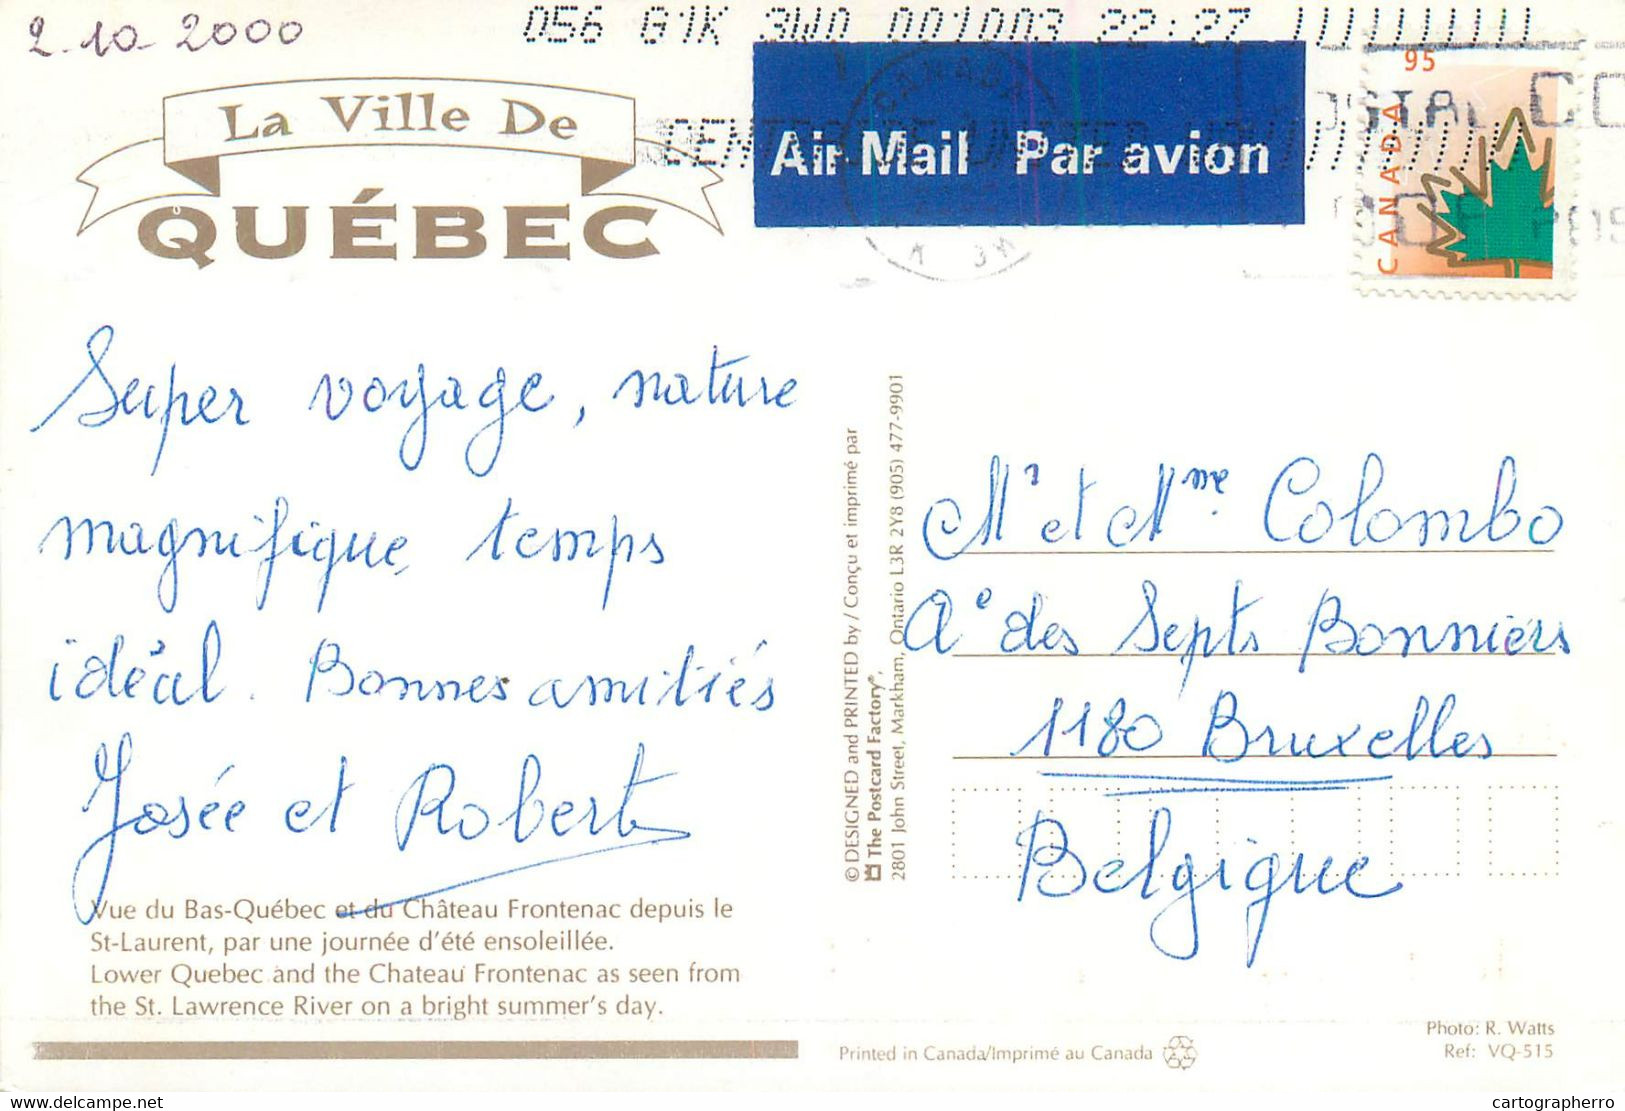 2-10-2000
056 G1K 3W0 001003 22:27
La Ville De
QUÉBEC
Air Mail Par avion
CANADA
95
CANADA
Super voyage, nature
magnifique, temps
idéal. Bonnes amitiés
Josée et Robert
Vue du Bas-Québec et du Château Frontenac depuis le
St-Laurent, par une journée d'été ensoleillée.
Lower Quebec and the Chateau Frontenac as seen from
the St. Lawrence River on a bright summer's day.
© DESIGNED and PRINTED by / Conçu et imprimé par
The Postcard Factory®,
2801 John Street, Markham, Ontario L3R 2Y8 (905) 477-9901
Mr et Mme Colombo
Ae des Septs Bonniers
1180 Bruxelles
Belgique
Photo: R. Watts
Ref: VQ-515
Printed in Canada/Imprimé au Canada
www.delcampe.net
cartographerro